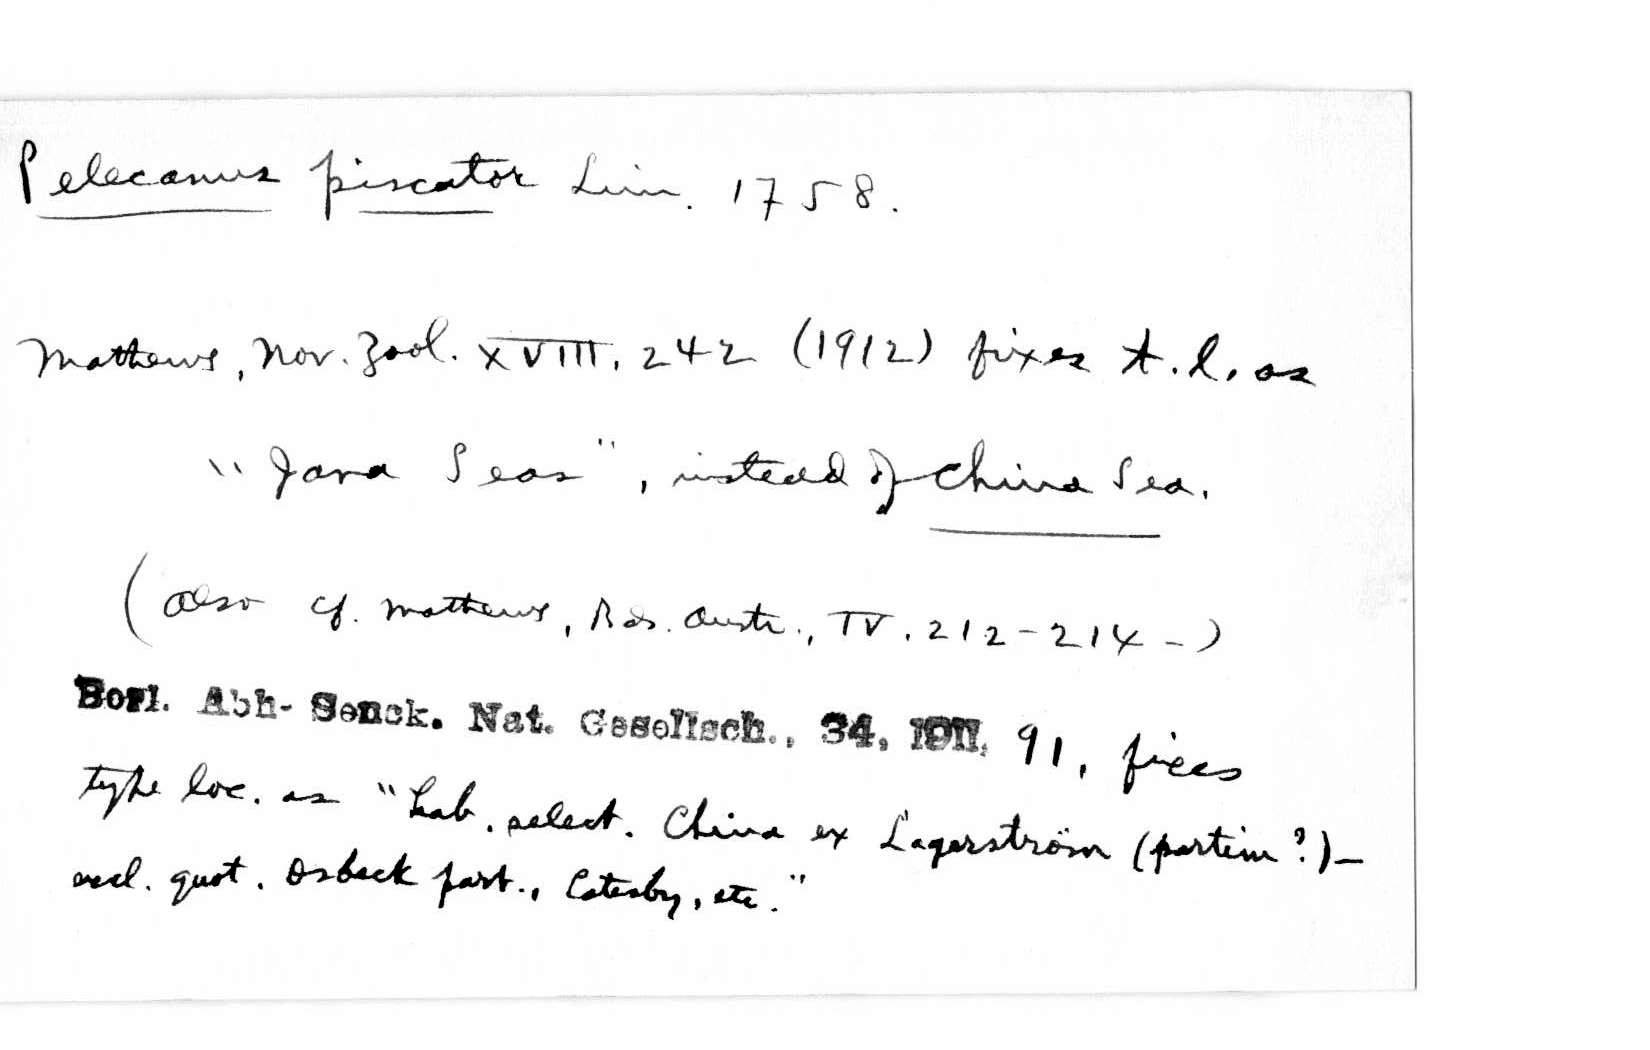 Pelecanus piscator Linn. 1758.
Mathews, Nov. Zool. XVIII, 242 (1912) fixes t.l. as
"Java Seas", instead of China Sea.
(also cf. Mathews, Bds. Austr., IV. 212-214-)
Berl. Abh- Senck. Nat. Gesellsch., 34, 1911, 91, fixes
type loc. as "hab. select. China ex Lagerström (partim?)—
excl. quot. Osbeck part., Catesby, etc."